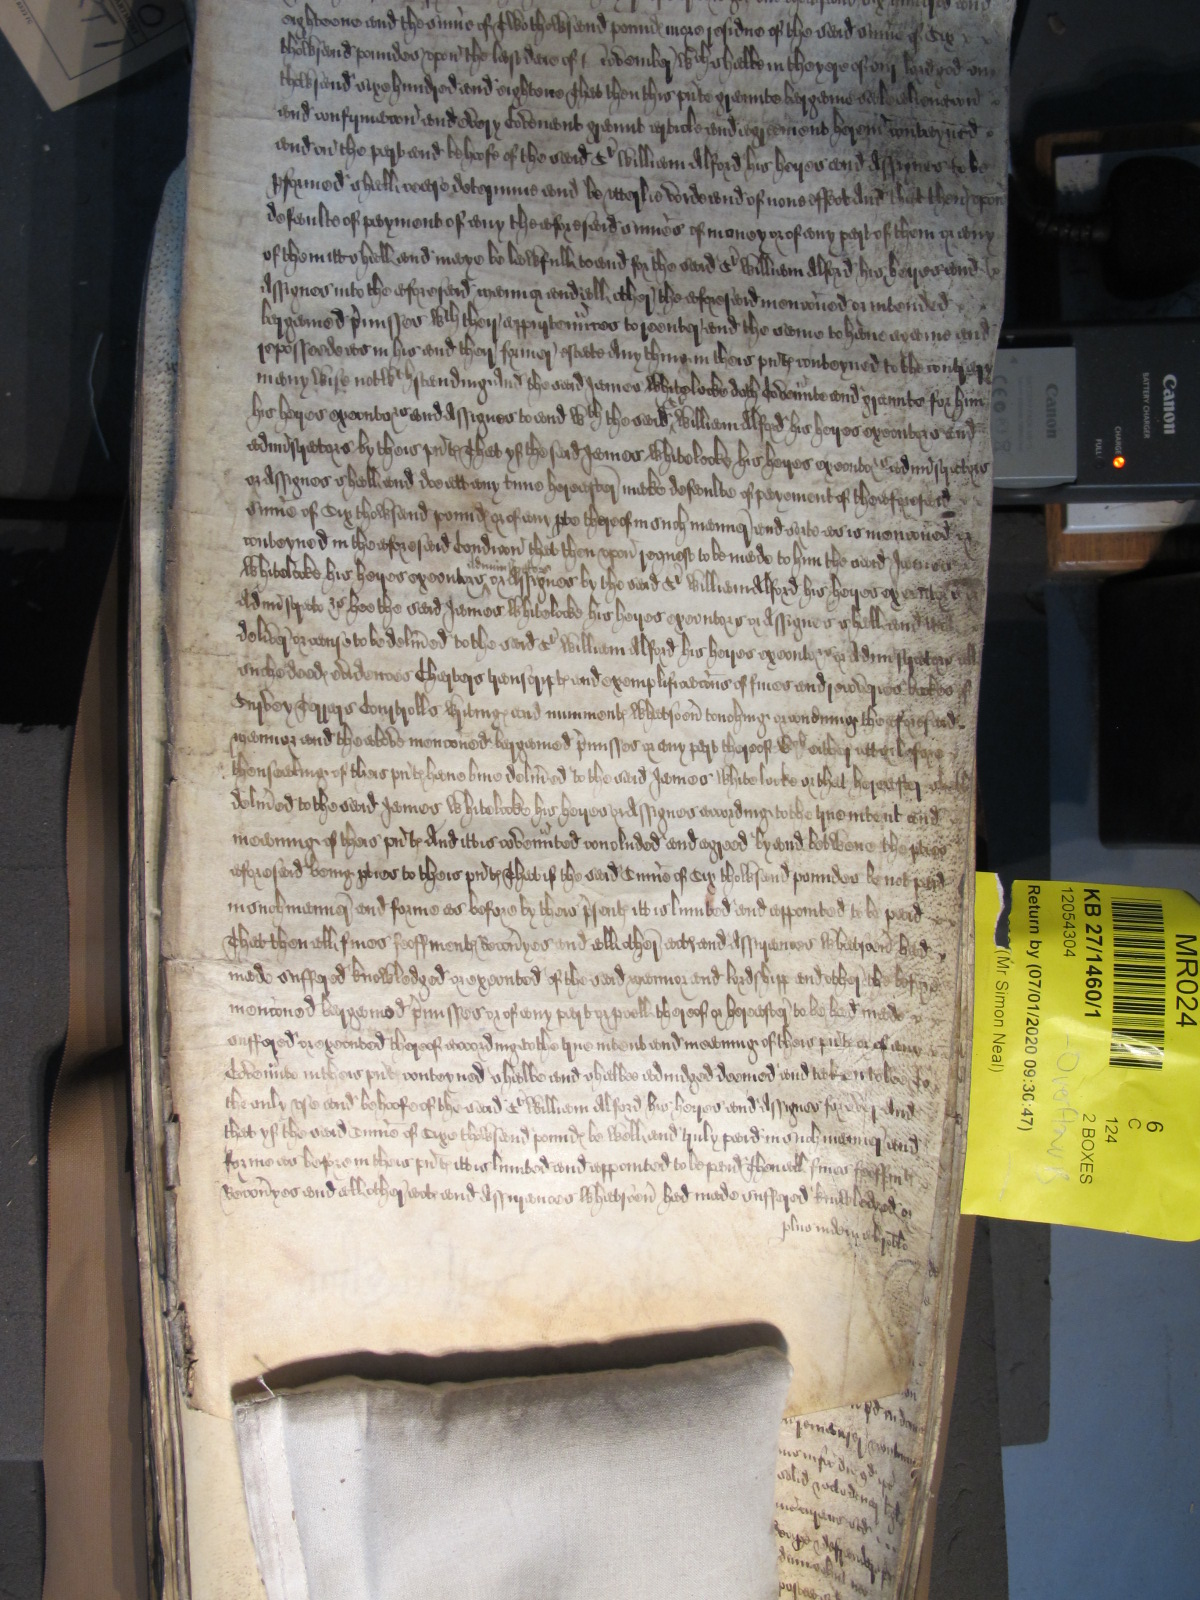 eighteene and the sume of Two thowsand pound more residue of the said sume of Six
thowsand poundes upon the last daie of November wch shalbe in the yere of our lord god one
thowsand sixe hundred and eightene That then this pnte graunte bargaine sale alienacon
and confirmacon and every Covenant graunt article and agreement herein conteyned
and on the part and behoofe of the said Sr William Alford his heyres and Assignes to be
pformed shall cease determine and be utterlie voide and of none effect And that then upon
defaulte of payment of any the aforesaid sumes of money or of any part of them or any
of them itt shall and maye be lawfull to and for the said Sr William Alford his heyres and
Assignes into the aforesaid mannor and all other the aforesaid menconed or intended
bargained pmisses wth their appurtenances to reenter and the same to have againe and
repossede as in his and their former estate Any thing in theis pnts conteyned to the contrary
in any wise notwthstanding And the said James Whitelocke doth Covenite and graunte for him
his heyres executors and Assignes to and wth the said Sr William Alford his heyres executors and
administrators by theis pnts That yf the said James Whitelocke his heyres executors administrators
or Assignes shall and doe att any time hereafter make defaulte of payement of the aforesaid
sume of Six thowsand pound or of any pte thereof in such manner and sorte as is menconed or
conteyned in the aforesaid Condicon that then upon request to be made to him the said James
Whitelocke his heyres executors administrators or Assignes by the said Sr William Alford his heyres executors or
Administrators hee the said James Whitelocke his heyres executors or Assignes shall and will
deliver or cause to be delived to the said Sr William Alford his heyres executors or Administrators all
suche deeds evidences Charters transcripts and exemplificacons of fines and recoveries bookes of
Survey Terrars Controlls writings and muniments whatsoever touching or concerning the aforesaid
mannor and the above menconed bargained pmisses or any part thereof wch either att or before
thensealing of theis pnts have bine delived to the said James Whitelocke or that hereafter shalbe
delived to the said James Whitelocke his heyres or Assignes according to the true intent and
meaning of theis pnts And itt is covenited concluded and agreed by and betwene the pties
aforesaid being pties to theis pnts That if the said Sume of Six thowsand poundes be not paid
in such manner and forme as before by theis psents itt is limited and appointed to be paid
That then all fines feoffments recovyes and all other acts and Assurances whatsoever had
made suffered knowledged or executed of the said mannor and lordshipp and other the before
menconed bargained pmisses or of any part or pcell thereof or hereafter to be had made
suffered or executed thereof according to the true intent and meaning of theis pnts or of any
Covenite in theis pnts conteyned shalbe and shalbee adiudged deemed and taken to bee to
the only use and behoofe of the said Sr William Alford his heyres and Assignes for ever And
that yf the said Sume of Sixe thowsand pounds be well and truly paid in such manner and
forme as before in theis pnts itt is limited and appointed to be paid Then all fines feoffmts
recovyes and all other acts and Assurances whatsoever had made suffered knowledged or
plus inde
MR024
6
C
KB 27/1460/1
124
2 BOXES
12054304
Return by (07/01/2020 09:36:47)
(Mr Simon Neal)
Canon
BATTERY CHARGER
CHARGE
FULL
Canon